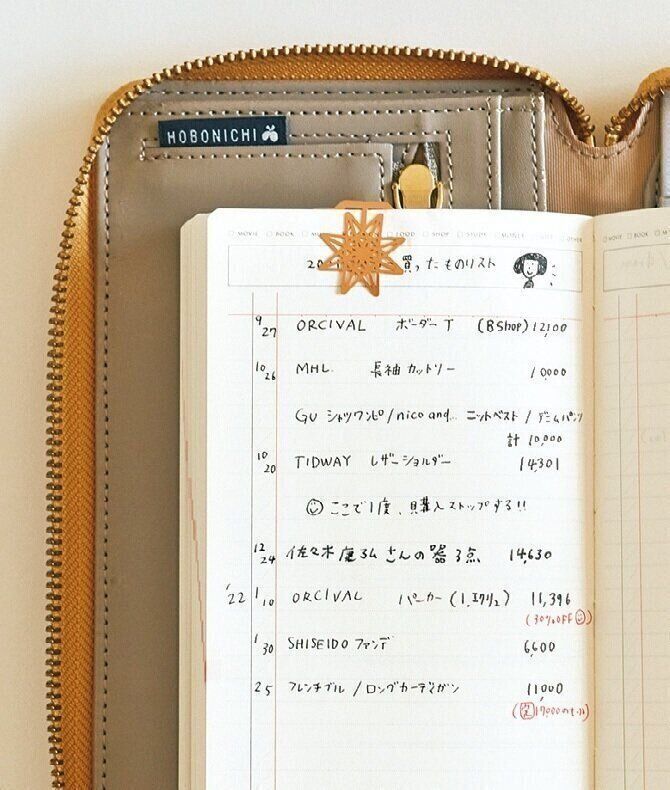 HOBONICHI
MOVIE BOOK FOOD SHOP STUDY MONEY OTHER
20 買ったものリスト
9/27 ORCIVAL ボーダーT (Bshop) 12,100
10/26 MHL. 長袖カットソー 10,000
GU シャツワンピ/nico and... ニットベスト/デニムパンツ
計 10,000
10/20 TIDWAY レザーショルダー 14,301
ここで1度、購入ストップする!!
12/24 さんの器3点 14,630
'22 1/10 ORCIVAL パーカー 11,396
(30%OFF)
1/30 SHISEIDO ファンデ 6,600
2 5 フレンチブル/ロングカーデガン 11,000
17000の